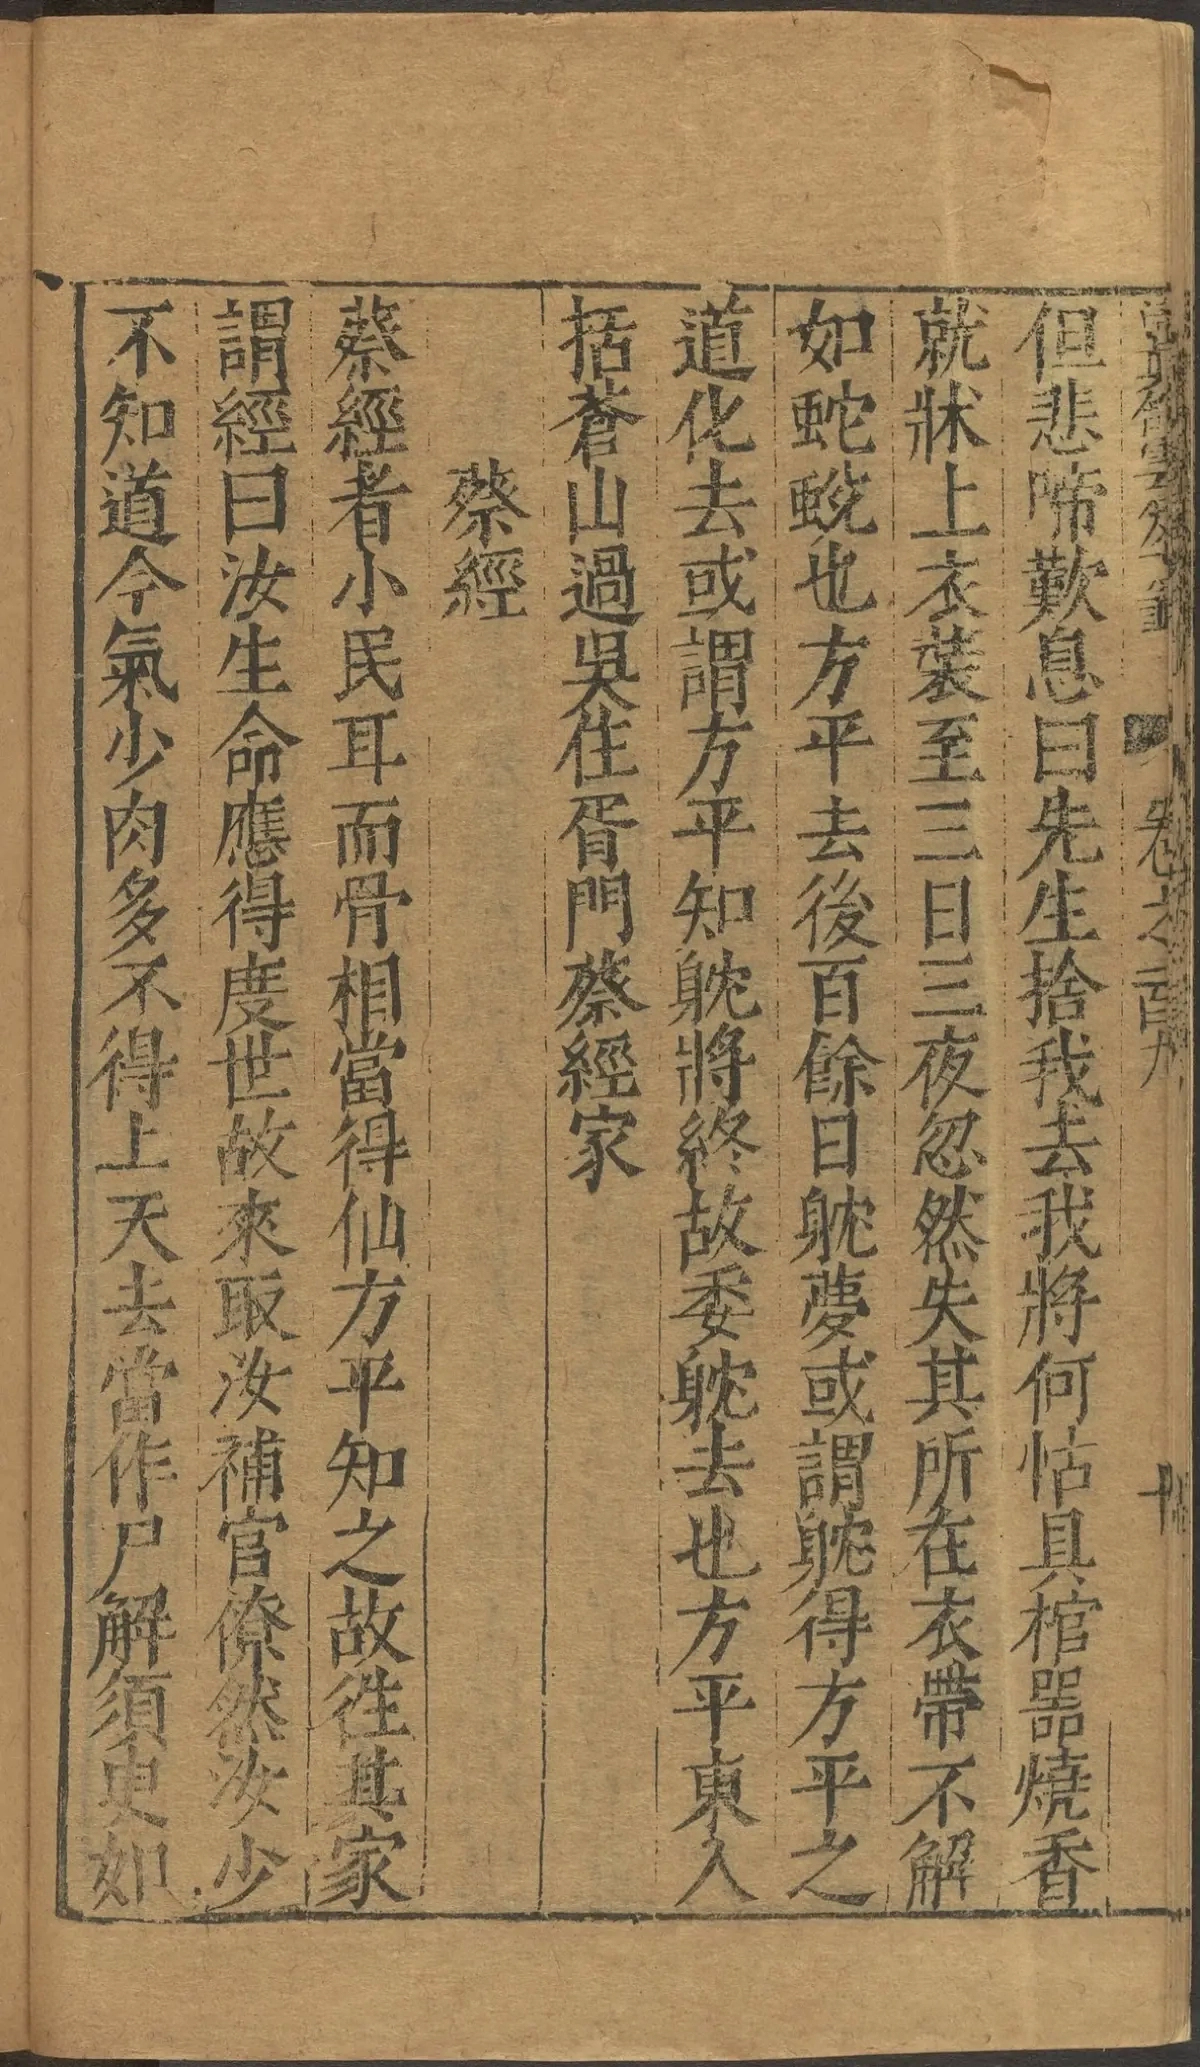 卷之一百九
但悲啼歎息曰先生捨我去我將何怙具棺器燒香
就牀上衣裝至三日三夜忽然失其所在衣帶不解
如蛇蛻也方平去後百餘日躭夢或謂躭得方平之
道化去或謂方平知躭將終故委躭去也方平東入
括蒼山過吳住胥門蔡經家
蔡經
蔡經者小民耳而骨相當得仙方平知之故徃其家
謂經曰汝生命應得度世故來取汝補官僚然汝少
不知道今氣少肉多不得上天去當作尸解須臾如